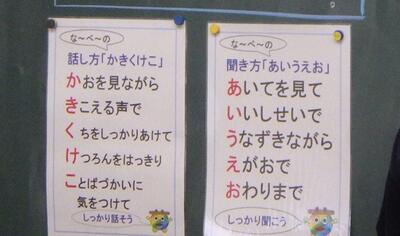 な～べ～の
話し方「かきくけこ」
かおを見ながら
きこえる声で
くちをしっかりあけて
けつろんをはっきり
ことばづかいに
気をつけて
しっかり話そう
な～べ～の
聞き方「あいうえお」
あいてを見て
いいしせいで
うなずきながら
えがおで
おわりまで
しっかり聞こう